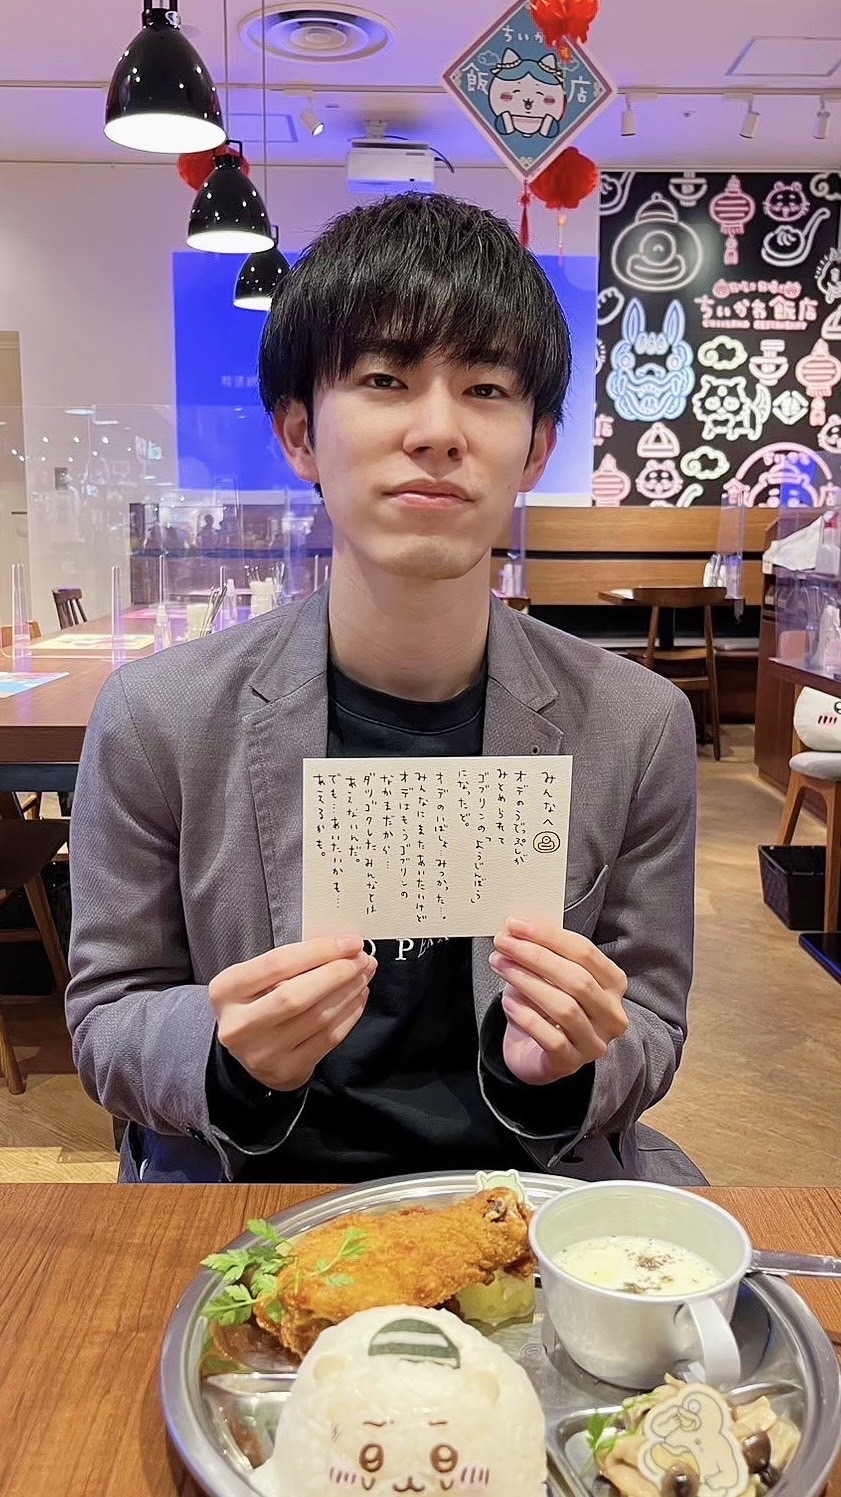 ちいかわ
飯店
ちいかわ飯店
CHIIKAWA RESTAURANT
みんなへ
オデのうでっぷしが
みとめられて
ゴブリンの「ようじんぼう」
になったど。
オデのいばしょ…みつかった…。
みんなにまたあいたいけど
オデはもうゴブリンの
なかまだから…
ダリゴクしたみんなとは
あえないんだ。
でも…あいたいかも…
あえるかも。